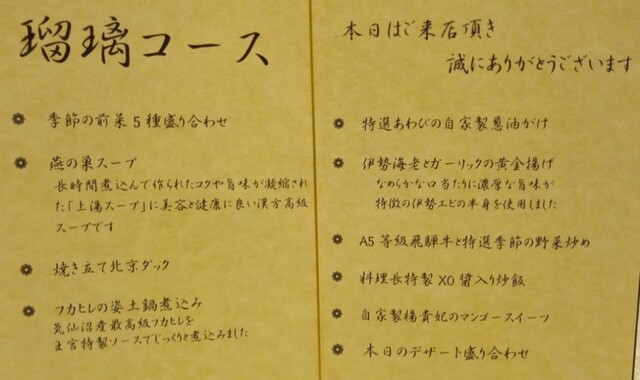 瑠璃コース
季節の前菜5種盛り合わせ
燕の巣スープ
長時間煮込んで作られたコクや旨味が凝縮され
た「上湯スープ」に美容と健康に良い漢方高級
スープです
焼き立て北京ダック
フカヒレの姿土鍋煮込み
気仙沼産最高級フカヒレを
王宮特製ソースでじっくりと煮込みました
本日はご来店頂き
誠にありがとうございます
特選あわびの自家製葱油がけ
伊勢海老とガーリックの黄金揚げ
なめらかな口当たりに濃厚な旨味が
特徴の伊勢エビの半身を使用しました
A5等級飛騨牛と特選季節の野菜炒め
料理長特製XO醤入り炒飯
自家製楊貴妃のマンゴースイーツ
本日のデザート盛り合わせ